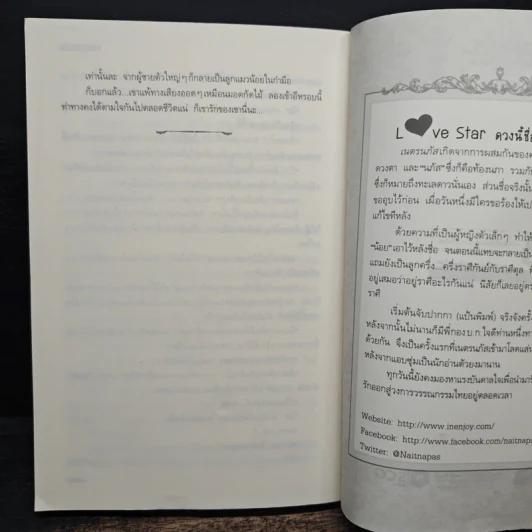 เท่านั้นละ จากผู้ชายตัวใหญ่ๆ ก็กลายเป็นลูกแมวน้อยในกำมือ
ก็บอกแล้ว...เขาแพ้ทางเสียงออดๆ เหมือนมอดกัดไม้ ลองเข้าอีหรอบนี้
ท่าทางคงได้ตามใจกันไปตลอดชีวิตแน่ ก็เขารักของเขานี่นะ...
L ve Star ดวงนี้ชื่อ
เนตรนภัสเกิดจากการผสมกันของ
ดวงตา และ "นภัส" ซึ่งก็คือท้องนภา รวมกั
ซึ่งก็หมายถึงทะเลดาวนั่นเอง ส่วนชื่อจริงนั้
ขออุบไว้ก่อน เผื่อวันหนึ่งมีใครขอร้องให้เป
แก้ไขทีหลัง
ด้วยความที่เป็นผู้หญิงตัวเล็กๆ ทำให้
"น้อย" เอาไว้หลังชื่อ จนตอนนี้แทบจะกลายเป็
แถมยังเป็นลูกครึ่ง...ครึ่งราศีกันย์กับราศีตุล
อยู่เสมอว่าอยู่ราศีอะไรกันแน่ นิสัยก็เลยอยู่
ราศี
เริ่มต้นจับปากกา (แป้นพิมพ์) จริงจังครั้
หลังจากนั้นไม่นานก็มีพี่กอง บ.ก.ใจดีท่านหนึ่ง
ด้วยกัน จึงเป็นครั้งแรกที่เนตรนภัสเข้ามาโลดแล่น
หลังจากแอบซุ่มเป็นนักอ่านตัวยงมานาน
ทุกวันนี้ยังคงมองหาแรงบันดาลใจเพื่อนำมา
รักออกสู่วงการวรรณกรรมไทยอยู่ตลอดเวลา
Website: http://www.inenjoy.com/
Facebook: http://www.facebook.com/naitnapas
Twitter: @Naitnapas